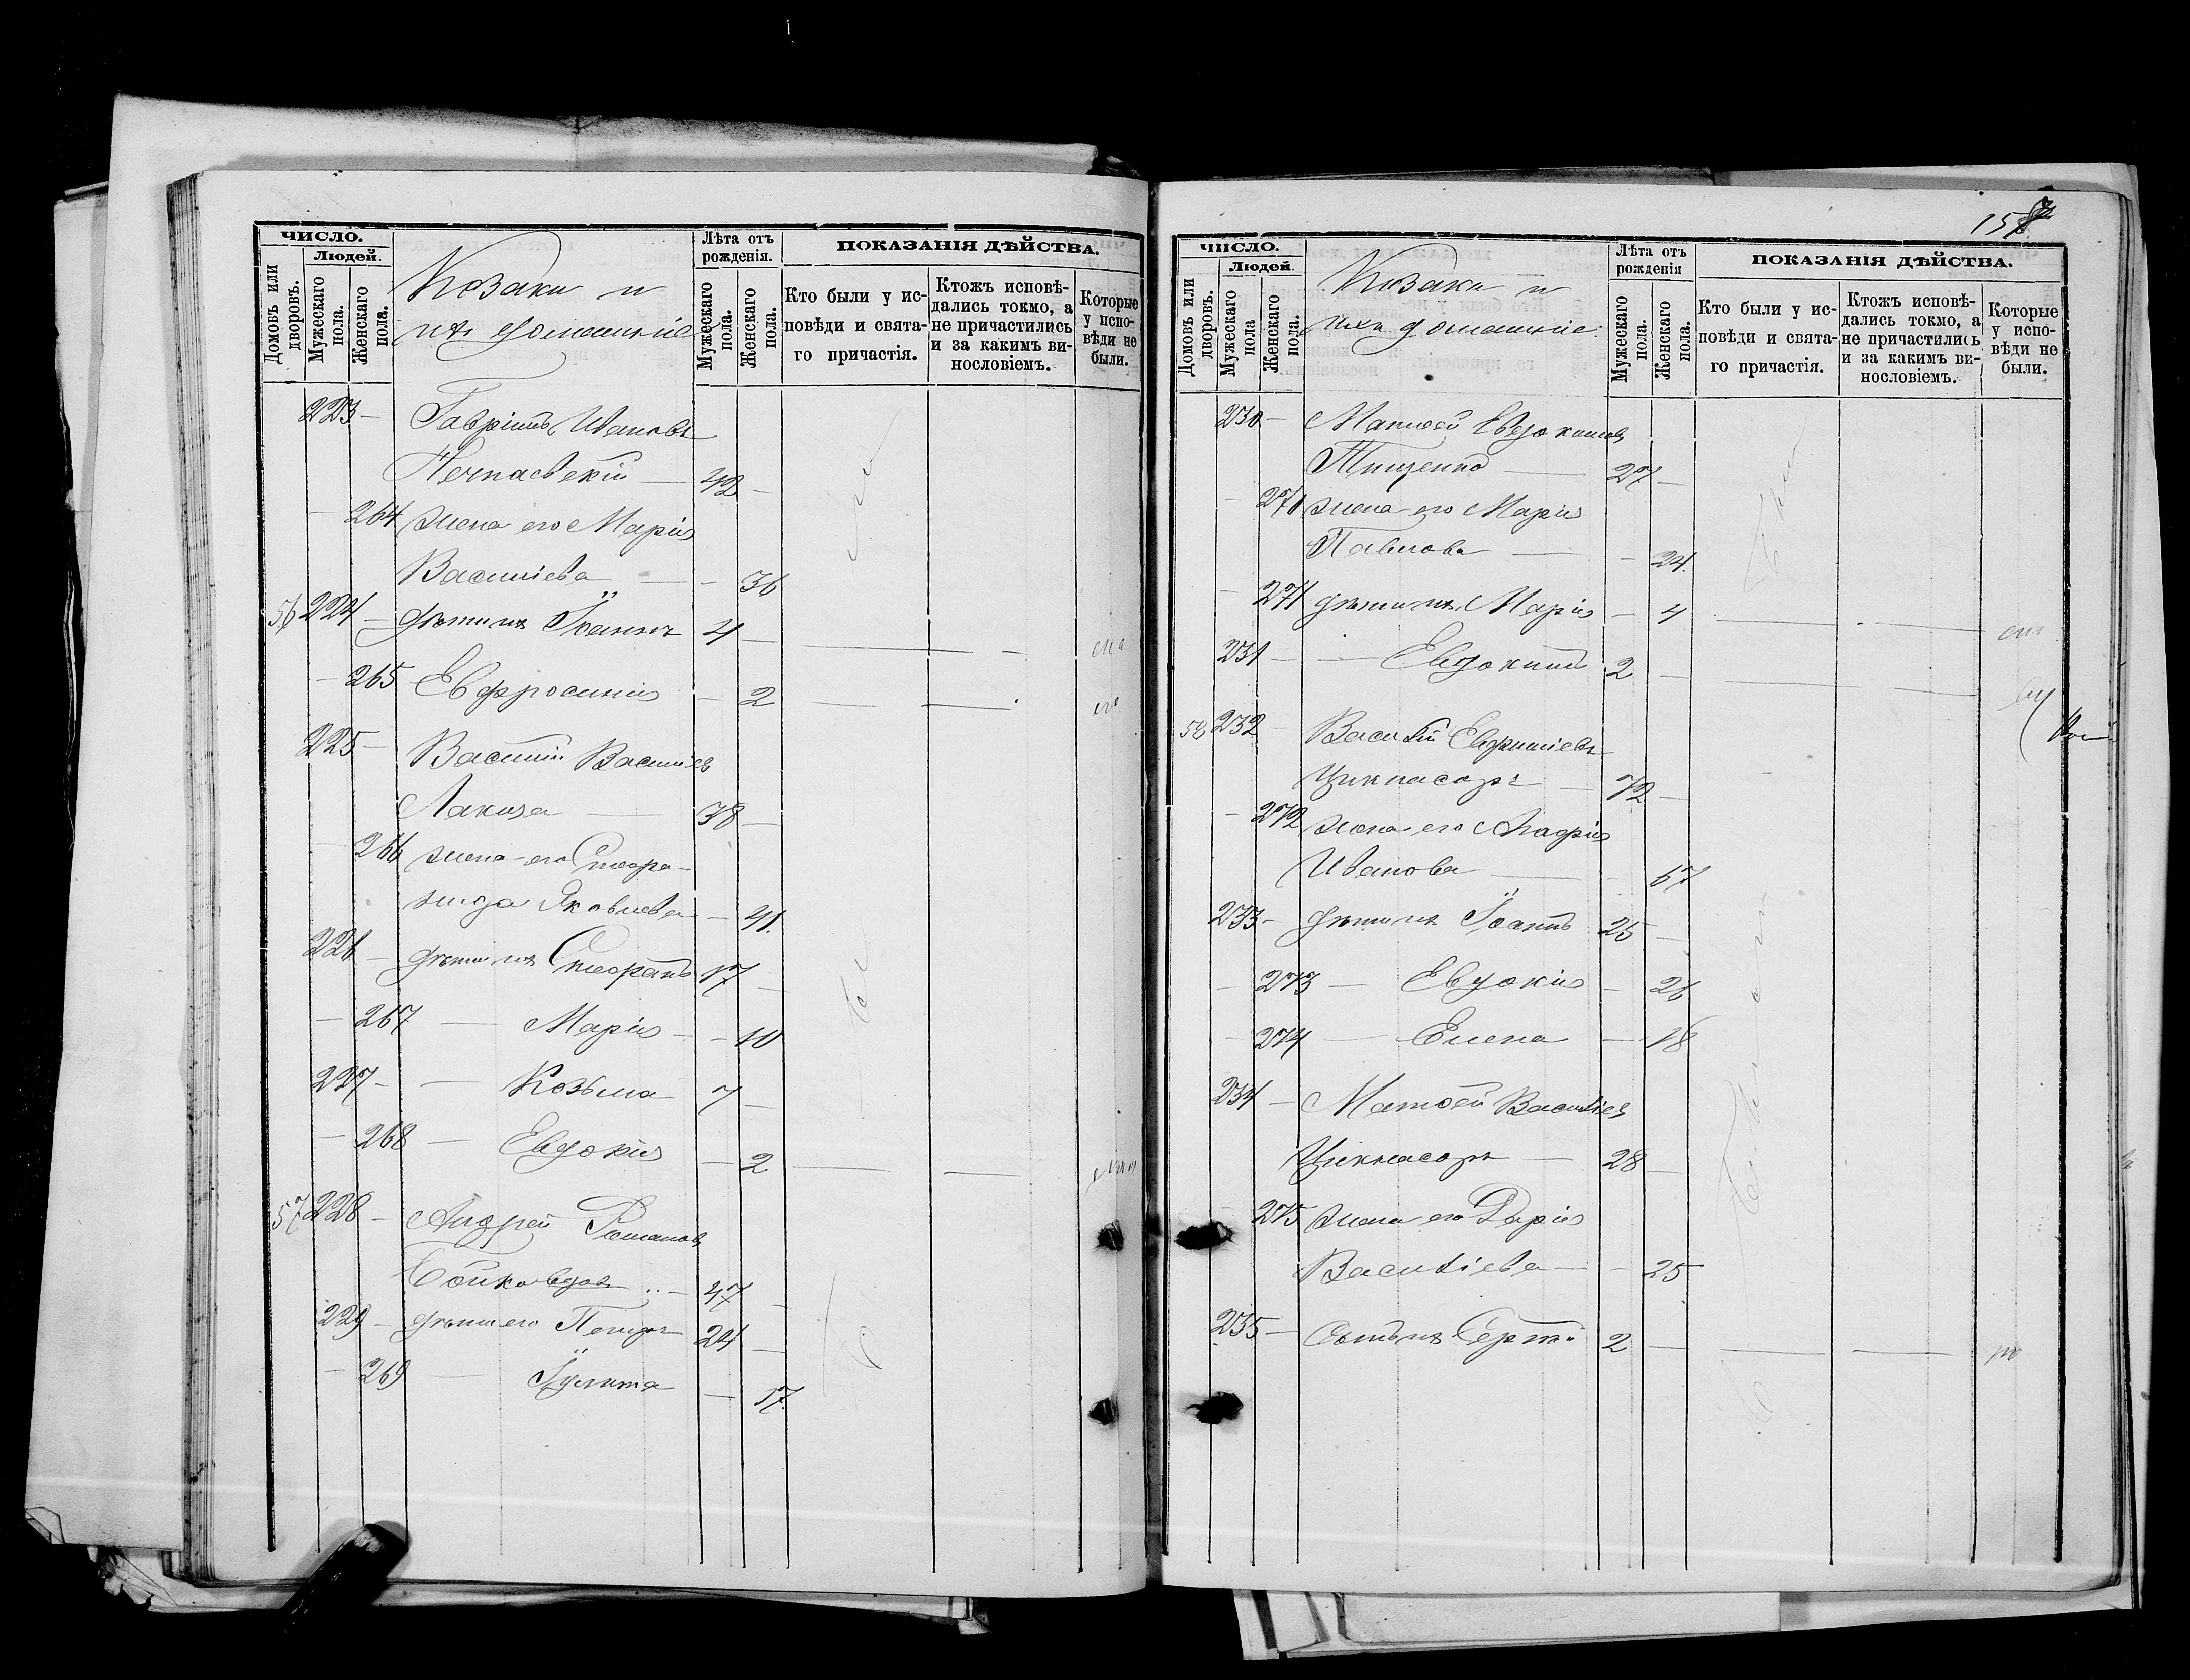 ЧИСЛО.
Людей.
Домовъ или дворовъ.
Мужескаго пола.
Женскаго пола.
Козаки и
ихъ домашніе
Лѣта отъ рожденія.
Мужескаго пола.
Женскаго пола.
ПОКАЗАНІЯ ДѢЙСТВА.
Кто были у ис-
повѣди и свята-
го причастія.
Ктожъ исповѣ-
дались токмо, а
не причастились
и за какимъ ви-
нословіемъ.
Которые
у испо-
вѣди не
были.
223 — Гавріилъ Ивановъ
— 42 —
— 264 жена его Марія
Василіева — — 36
56 224 — дѣти ихъ Іоаннъ 4 —
— 265 Евфросинія — 2
225 — Василій Василіев
Лакиза — 38 —
— 266 жена его
Яковлева — 41.
226 — дѣти ихъ Стефанъ 17 —
— 267 — Марія — — 10
227 — — Козьма 7 —
— 268 — Евдокія — 2
57 228 — Андрей Романов
Бойко вдов — 47 —
229 — дѣти его Петръ 24 —
— 269 — Іулита — 17.
157
ЧИСЛО.
Людей.
Домовъ или дворовъ.
Мужескаго пола
Женскаго пола.
Козаки и
ихъ домашніе
Лѣта отъ рожденія
Мужескаго пола.
Женскаго пола.
ПОКАЗАНІЯ ДѢЙСТВА.
Кто были у ис-
повѣди и свята-
го причастія.
Ктожъ исповѣ-
дались токмо, а
не причастились
и за какимъ ви-
нословіемъ.
Которые
у испо-
вѣди не
были.
230 — Матѳей Евдокимов
Тищенко — 27 —
— 270 жена его Марія
Павлова — — 24.
— 271 дѣти ихъ Марія — 4
231 — — Евдокимъ 2 —
58 232 — Василій
72 —
— 272 жена его Агафія
Иванова — — 67
233 — дѣти ихъ Іоаннъ 25 —
— 273 — Евдокія — 26
— 274 — Елена — 18
234 — Матѳей Василіев
— 28 —
— 275 жена его Дарія
Василіева — — 25
235 — Сынъ ихъ Сергій 2 —